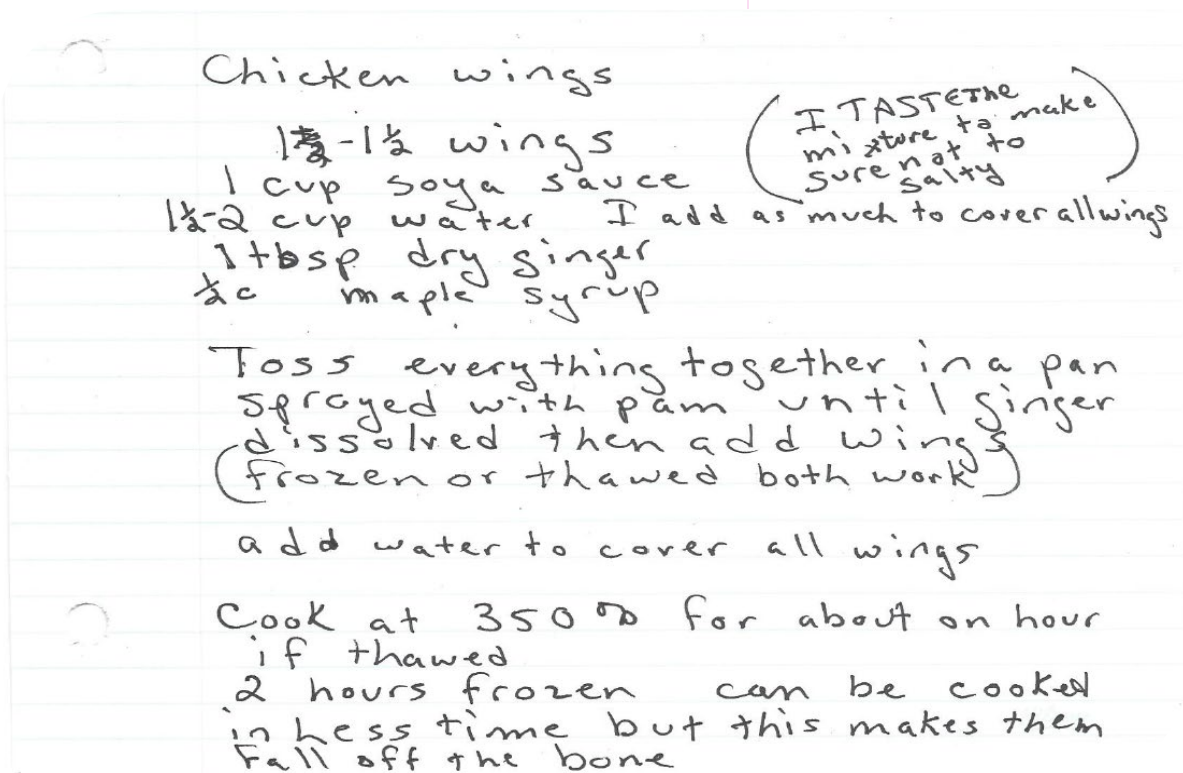 Chicken wings
1½-1½ wings
(I TASTE The
mixture to make
sure not to
salty)
1 cup soya sauce
1½-2 cup water I add as much to cover all wings
1 tbsp dry ginger
½ c maple syrup
Toss everything together in a pan
sprayed with pam until ginger
dissolved then add wings
(frozen or thawed both work)
add water to cover all wings
Cook at 350 for about on hour
if thawed
2 hours frozen can be cooked
in less time but this makes them
Fall off the bone